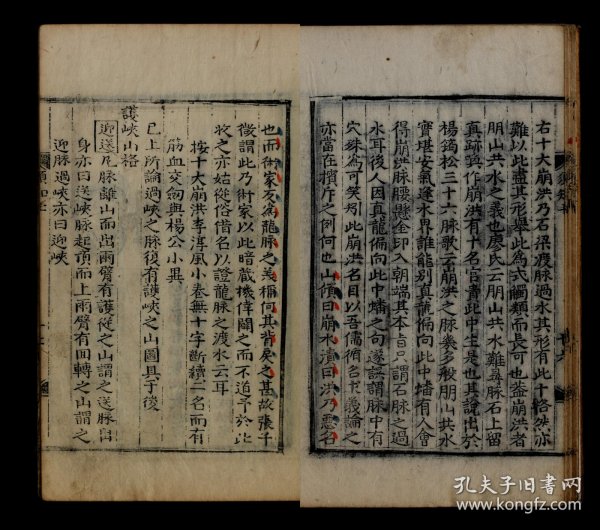 右十大崩洪乃石梁渡脉過水其形有此十格然亦
難以此盡其形舉此為式觸類而長可也盖崩洪者
朋山共水之義也廖氏云朋山共水難尋脉石上留
真跡誤作崩洪有十名官書此中生是也其說出於
楊筠松三十六脉歌云崩洪之脉幾多般朋山共水
實堪安氣逢水界誰能別真龍偏向此中墦有人會
得崩洪脉腰懸金印入朝端其本旨只謂石脉之過
水耳後人因真龍偏向此中墦之句遂誤謂脉中有
穴殊為可笑矧此崩洪名目以吾儒循名求義論之
亦當在擯斥之例何也山傾曰崩水漬曰洪乃惡名
也而術家反為龍脉之美稱何其背戾之甚故張子
微謂此乃術家以此暗藏機俾聞之而不道予於此
收之亦姑從俗借名以證龍脉之渡水云耳
按十大崩洪李淳風小卷無十字斷續二名而有
筋血交劒與楊公小異
已上所論過峽之脉復有護峽之山圖具于後
護峽山格
迎送凡脉離山而出兩臂有護從之山謂之送脉出
身亦曰送峽脉起頂而上兩臂有回轉之山謂之
迎脉過峽亦曰迎峽
孔夫子旧书网
www.kongfz.com